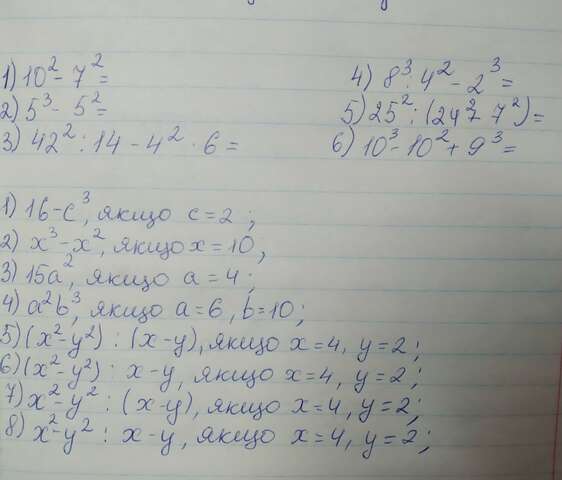 1) 10² - 7² =
2) 5³ - 5² =
3) 42² : 14 - 4² · 6 =
4) 8³ : 4² - 2³ =
5) 25² : (24² - 7²) =
6) 10³ - 10² + 9³ =
1) 16 - c³, якщо c = 2 ;
2) x³ - x², якщо x = 10,
3) 15a², якщо a = 4 ;
4) a²b³, якщо a = 6, b = 10 ;
5) (x² - y²) : (x - y), якщо x = 4, y = 2 ;
6) (x² - y²) : x - y, якщо x = 4, y = 2 ;
7) x² - y² : (x - y), якщо x = 4, y = 2 ;
8) x² - y² : x - y, якщо x = 4, y = 2 ;